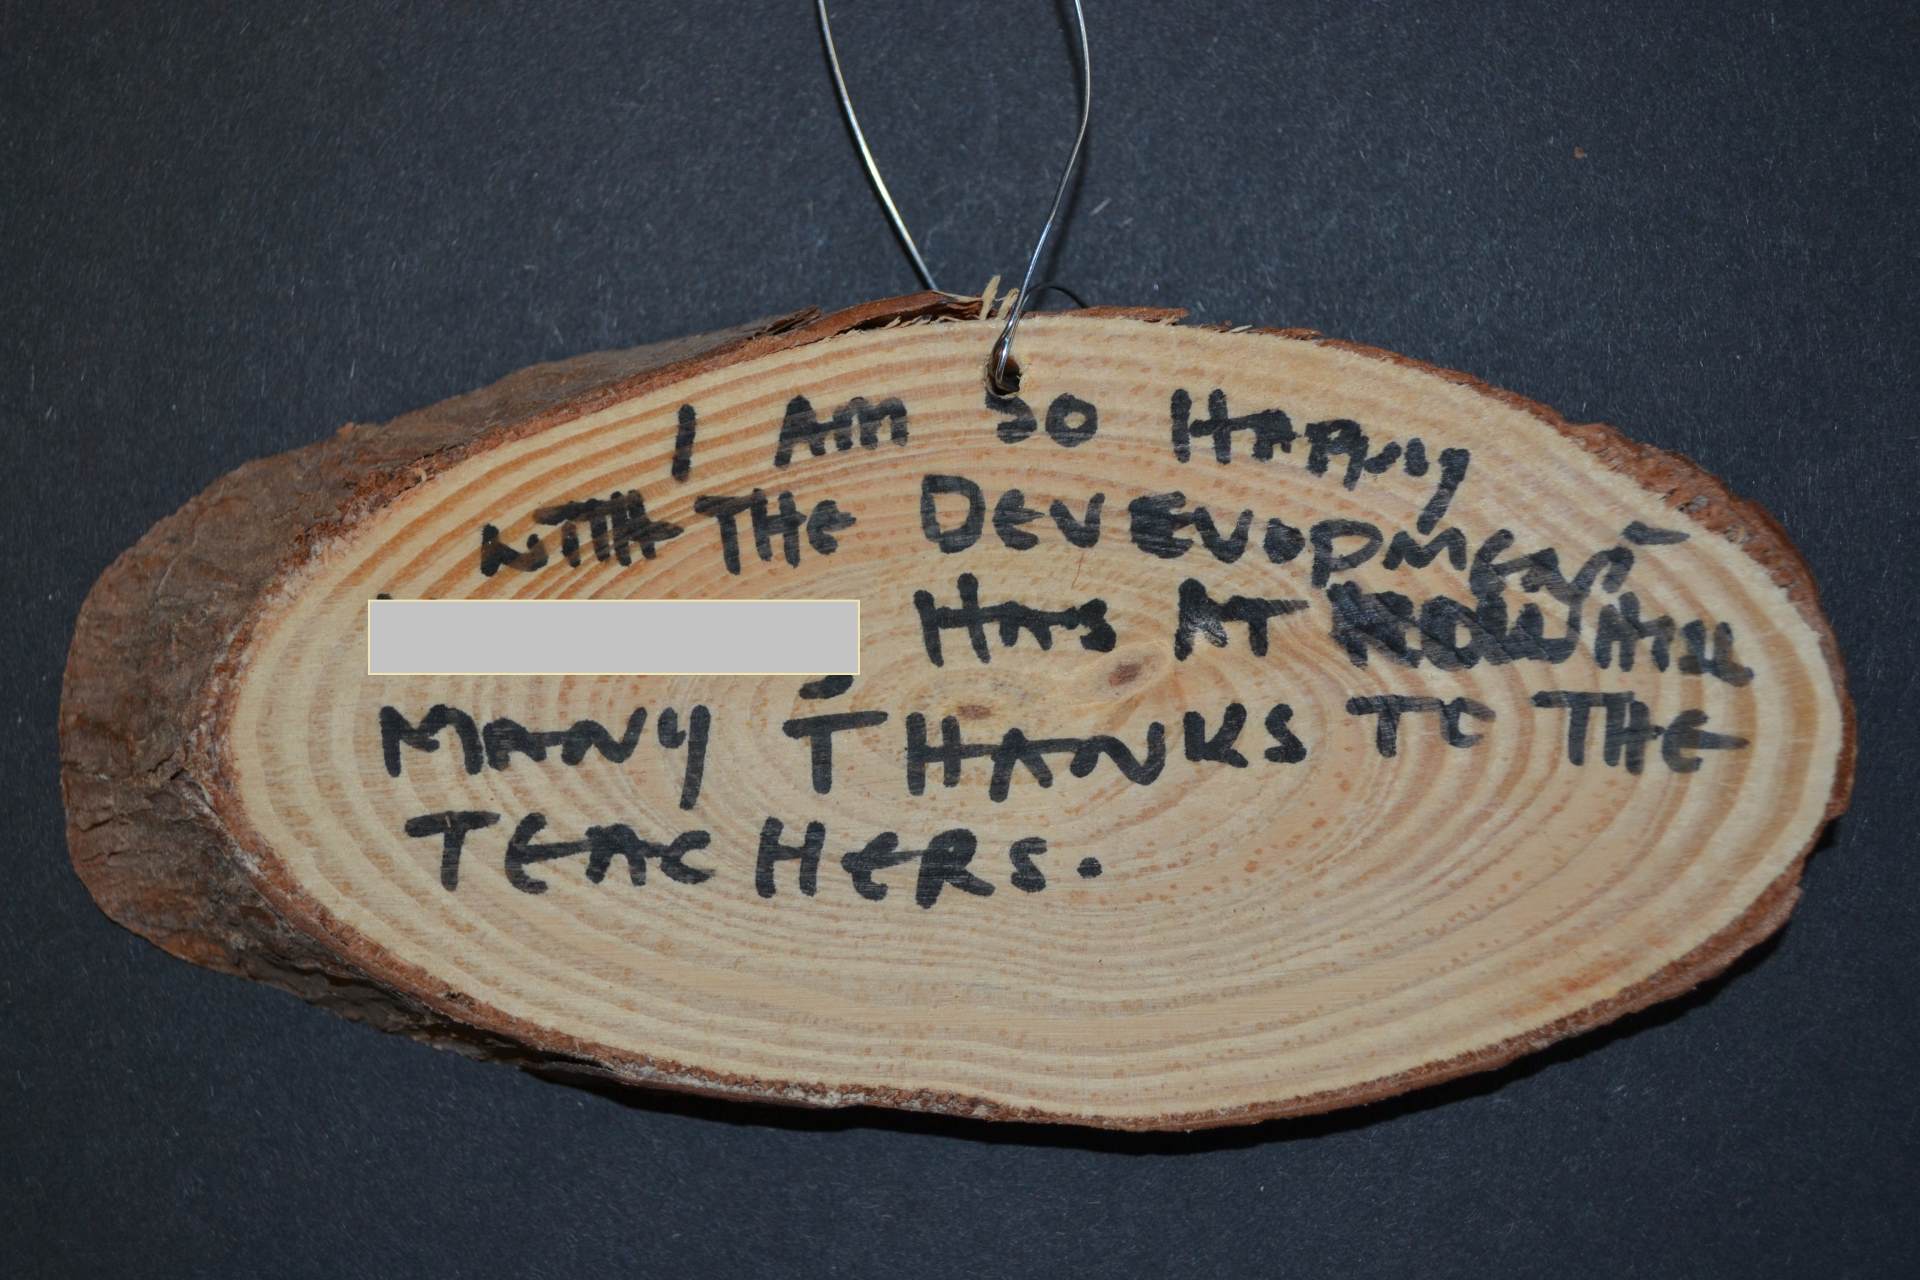 I AM SO HAPPY
WITH THE DEVEVOPMENT
HAS AT
MANY THANKS TO THE
TEACHERS.